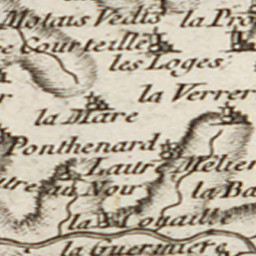 Motais Vedis la Pro
Courteille
les Loges
la Verrer
la Mare
Ponthenard
Laur Melier
au Noir la Ba
la Touaille
la Guerniere